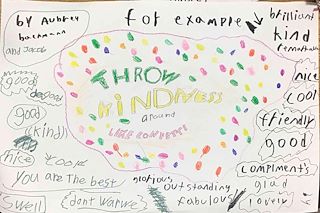 by Aubrey
bachmann
and Jacob
for example
brilliant
kind
remarkable
nice
cool
friendly
good
compliments
glad
lovely
THROW
KINDNESS
around
LIKE CONFETTI
good
good
(kind)
nice
cool
You are the best
Swell
dont worry
glorious
outstanding
fabulous